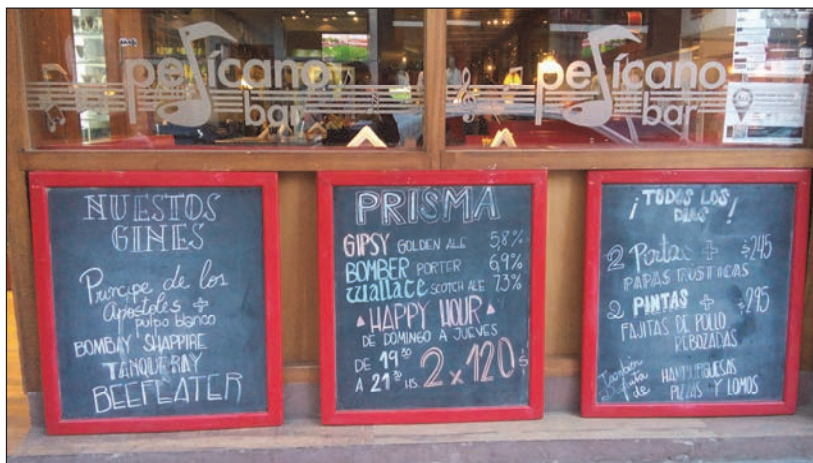 pelícano
bar
pelícano
bar
NUESTOS
GINES
Principe de los
Apostoles +
pulpo blanco
BOMBAY SHAPPIRE
TANQUERAY
BEEFEATER
PRISMA
GIPSY GOLDEN ALE 5,8%
BOMBER PORTER 6,9%
Wallace SCOTCH ALE 73%
HAPPY HOUR
DE DOMINGO A JUEVES
DE 19 30
A 21 30 HS. 2 x 120 $
¡ TODOS LOS
DIAS !
2 Pintas + $245
PAPAS RUSTICAS
2 PINTAS + $295
FAJITAS DE POLLO
REBOZADAS
También
disfruta
de HAMBURGUESAS
PIZZAS Y LOMOS